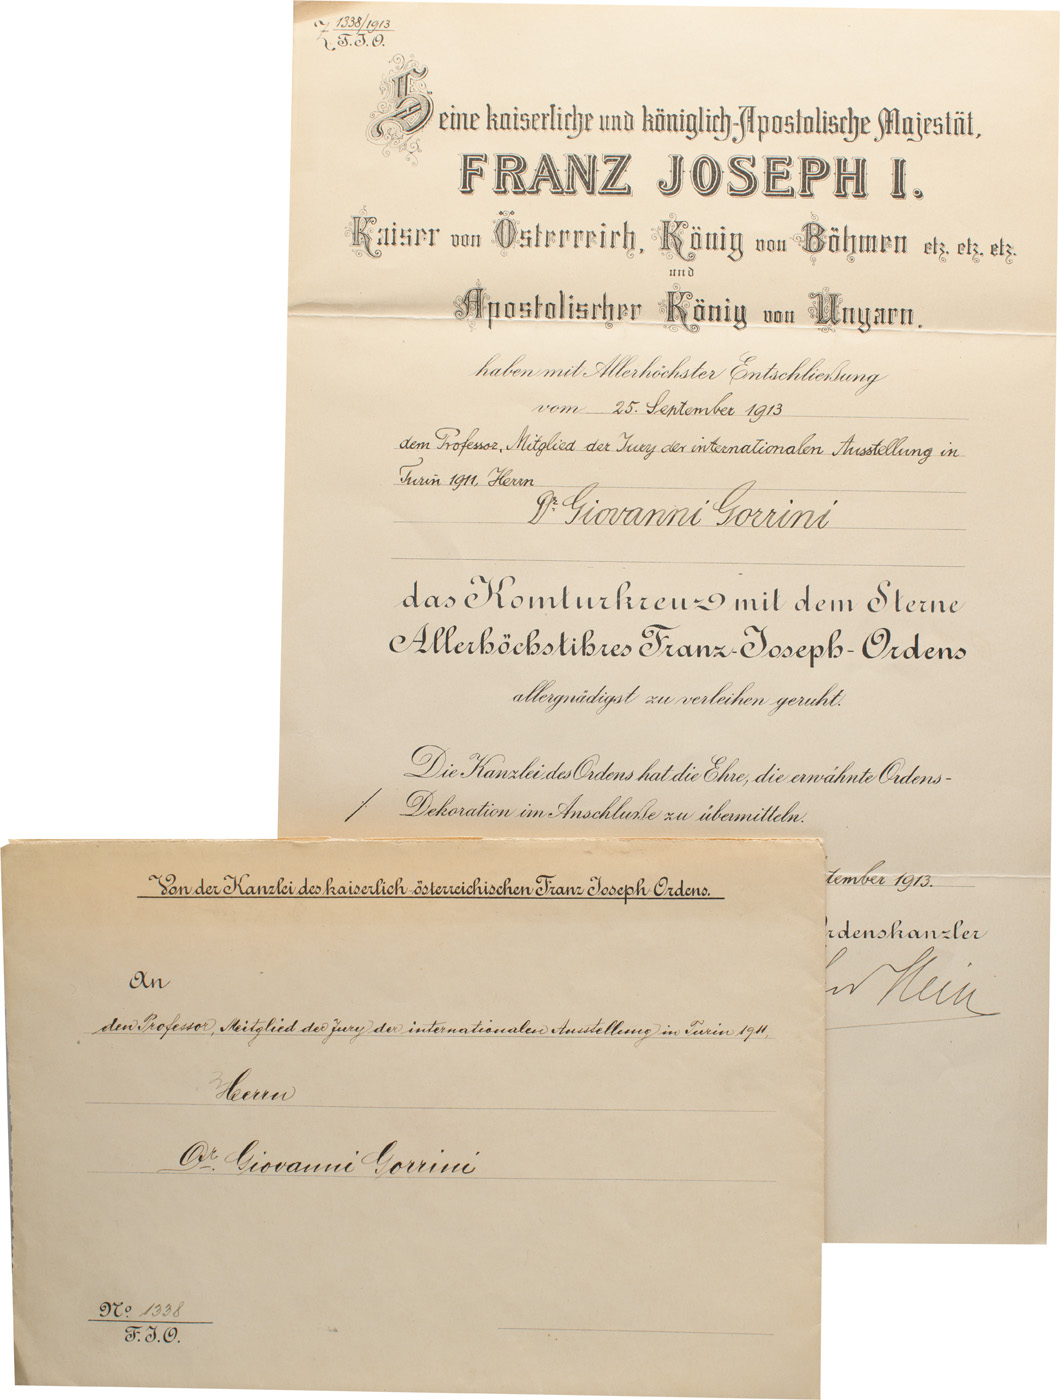 Z 1338/1913
F.J.O.
Seine kaiserliche und königlich-Apostolische Majestät,
FRANZ JOSEPH I.
Kaiser von Österreich, König von Böhmen etz. etz. etz.
und
Apostolischer König von Ungarn.
haben mit Allerhöchster Entschließung
vom 25. September 1913
dem Professor, Mitglied der Jury der internationalen Ausstellung in
Turin 1911, Herrn
Dr. Giovanni Gorrini
das Komturkreuz mit dem Sterne
Allerhöchstihres Franz-Joseph-Ordens
allergnädigst zu verleihen geruht.
Die Kanzlei des Ordens hat die Ehre, die erwähnte Ordens-
Dekoration im Anschluße zu übermitteln.
tember 1913.
rdenskanzler
Hein
Von der Kanzlei des kaiserlich-österreichischen Franz Joseph Ordens.
An
den Professor, Mitglied der Jury der internationalen Ausstellung in Turin 1911,
Herrn
Dr. Giovanni Gorrini
No. 1338
F.J.O.